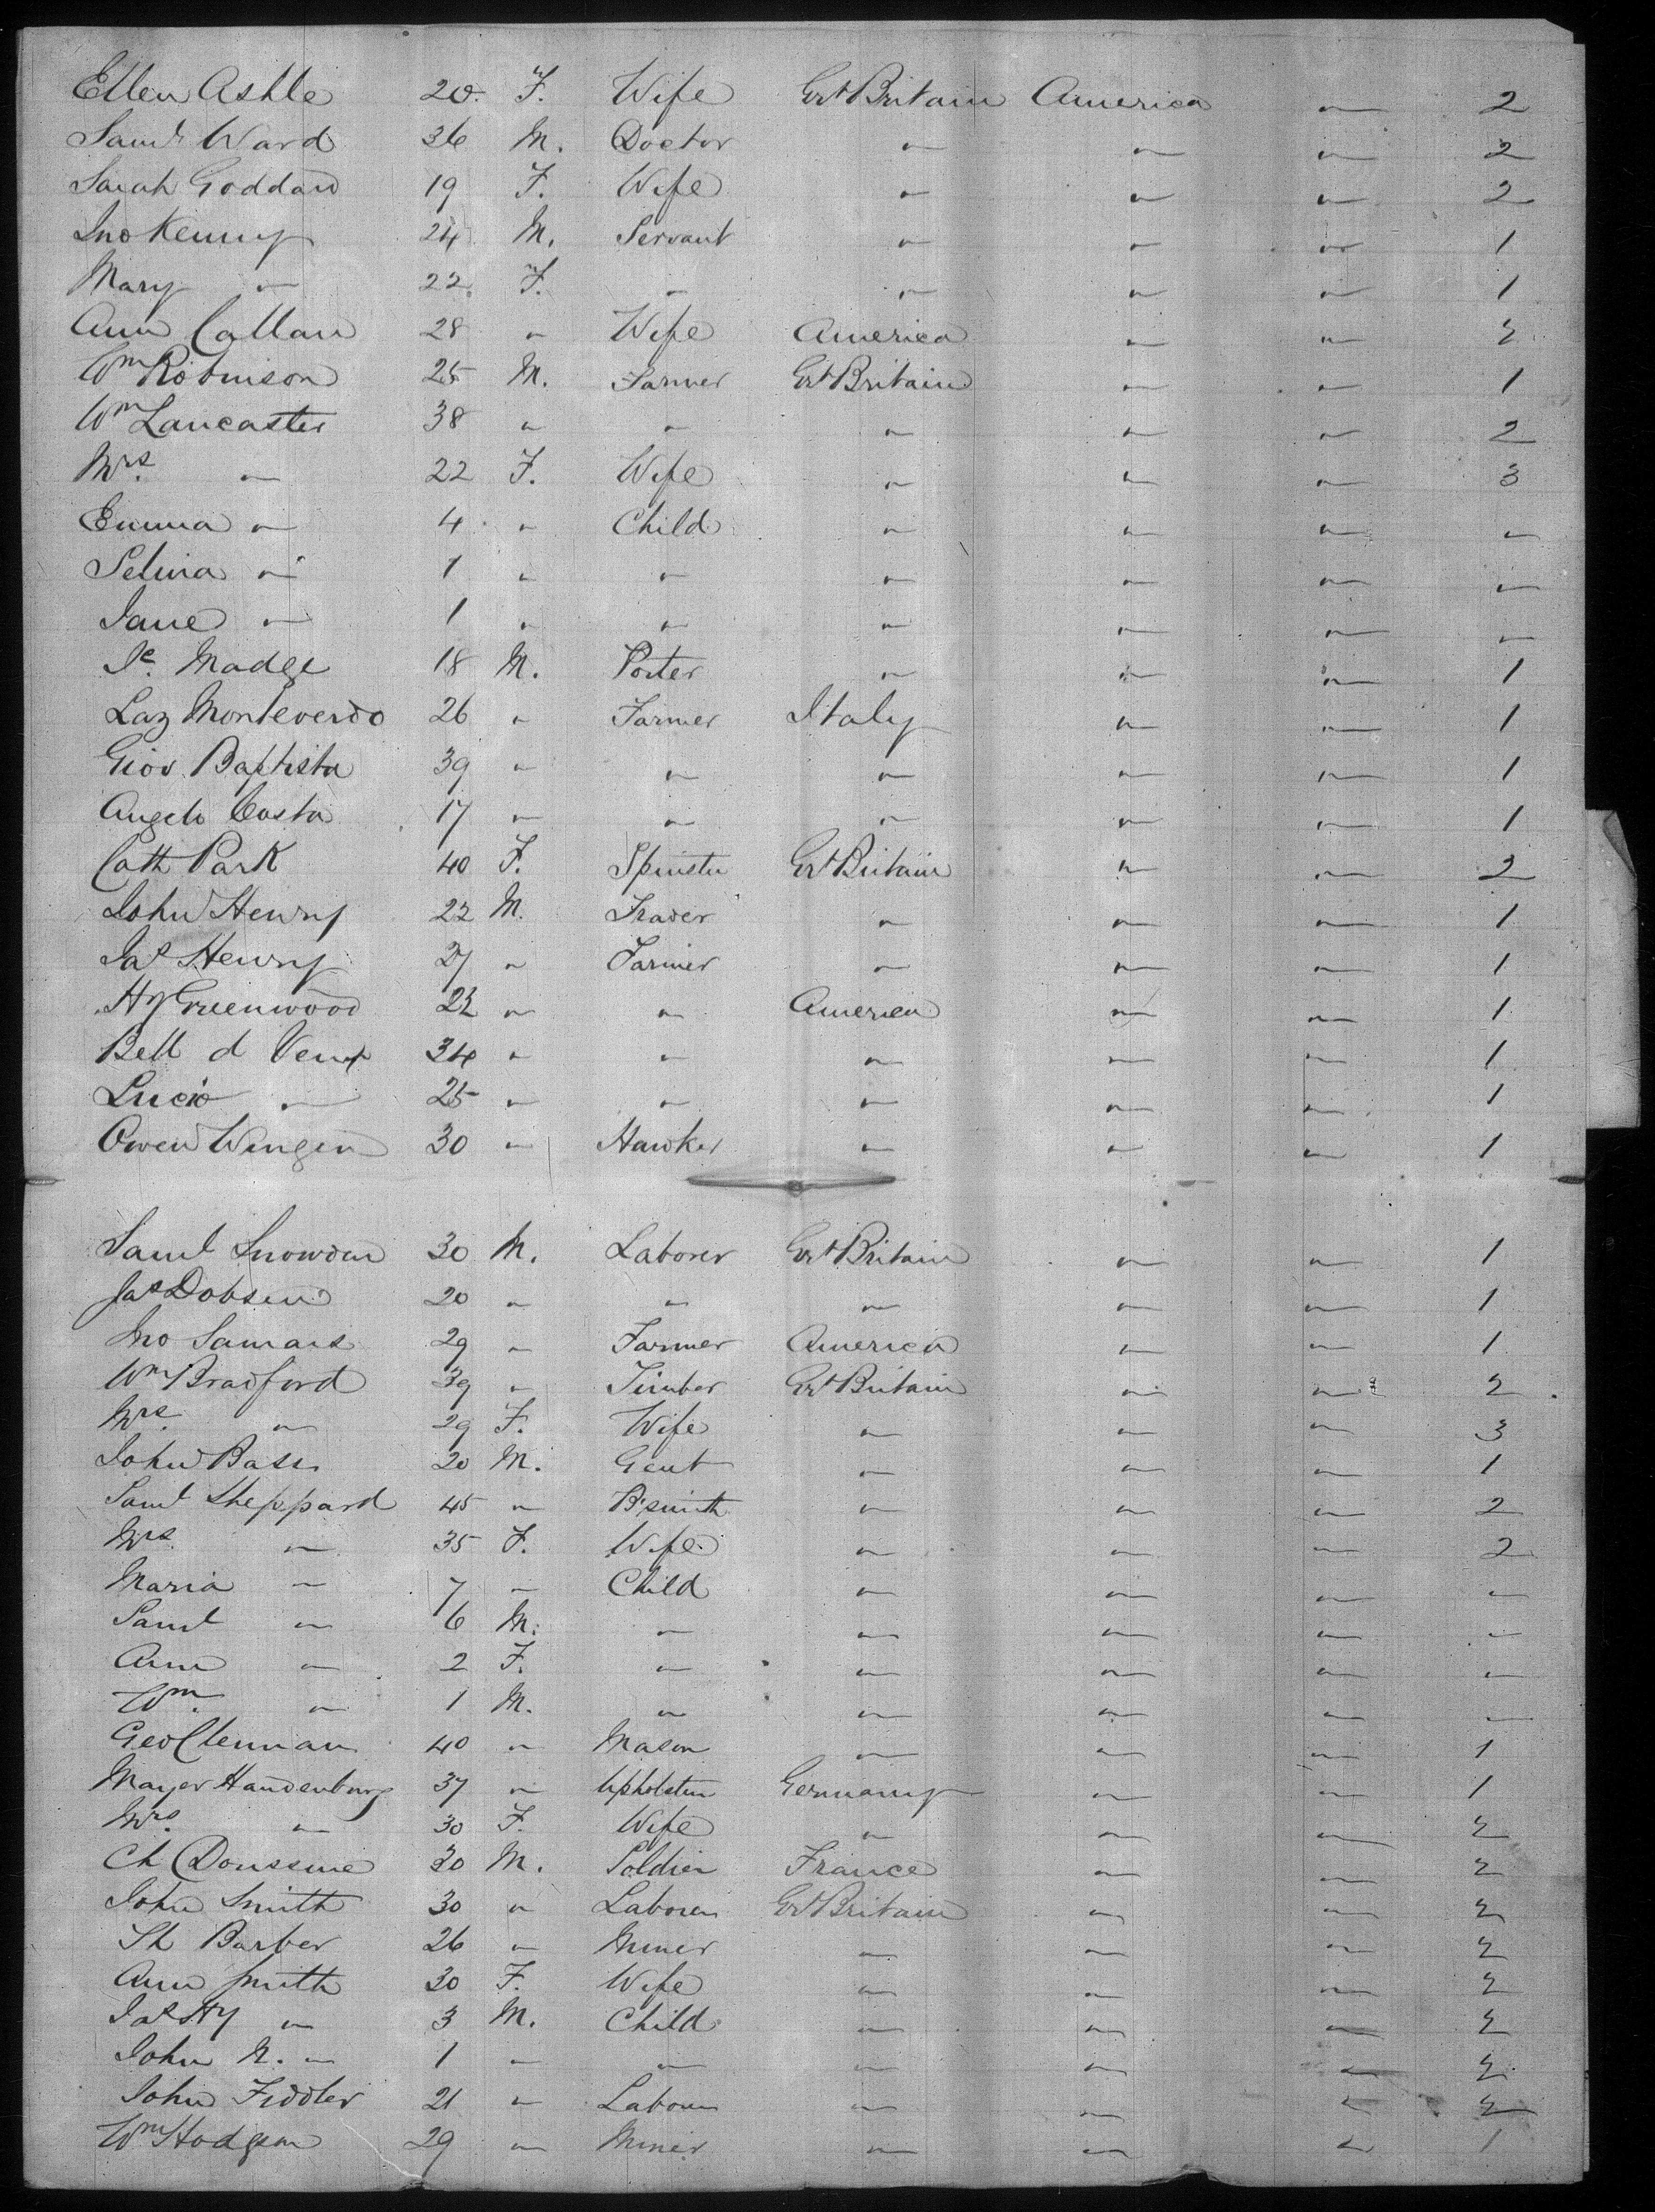 Ellen Ashle 20. F. Wife Grt Britain America " 2
Saml Ward 36 M. Doctor " " " 2
Sarah Goddard 19 F. Wife " " " 2
Jno Kenny 24 M. Servant " " " 1
Mary " 22 F. " " " " 1
Ann Callan 28 " Wife America " " 2
Wm Robinson 25 M. Farmer Grt Britain " " 1
Wm Lancaster 38 " " " " " 2
Mrs. " 22 F. Wife " " " 3
Emma " 4 " Child " " " "
Selina " 1 " " " " " "
Jane " 1 " " " " " "
Madge 18 M. Porter " " " 1
Laz Monteverdo 26 " Farmer Italy " " 1
Giov. Baptista 39 " " " " " 1
Angelo Costa 17 " " " " " 1
Cath Park 40 F. Spinster Grt Britain " " 2
John Henry 22 M. Trader " " " 1
Jas Henry 27 " Farmer " " " 1
Hy Greenwood 23 " " America " " 1
Bell d 34 " " " " " 1
Lucio " 25 " " " " " 1
Owen 30 " Hawker " " " 1
Saml Snowden 30 M. Laborer Grt Britain " " 1
Jas Dobson 20 " " " " " 1
Jno 29 " Farmer America " " 1
Wm Bradford 39 " Timber Grt Britain " " 2
Mrs. " 29 F. Wife " " " 3
John Bass 20 M. Gent " " " 1
Saml Sheppard 45 " B'smith " " " 2
Mrs. " 35 F. Wife " " " 2
Maria " 7 " Child " " " "
Saml " 6 M. " " " " "
Ann " 2 F. " " " " "
Wm. " 1 M. " " " " "
Geo Clennan 40 " Mason " " " 1
Mayer Handenburg 37 " Upholster Germany " " 1
Mrs. " 30 F. Wife " " " 2
Ch 30 M. Soldier France " " 2
John Smith 30 " Laborer Grt Britain " " 2
Th Barber 26 " Miner " " " 2
Ann Smith 30 F. Wife " " " 2
Jas Hy " 3 M. Child " " " 2
John N. " 1 " " " " " 2
John Fiddler 21 " Laborer " " " 2
Wm Hodgson 29 " Miner " " " 1